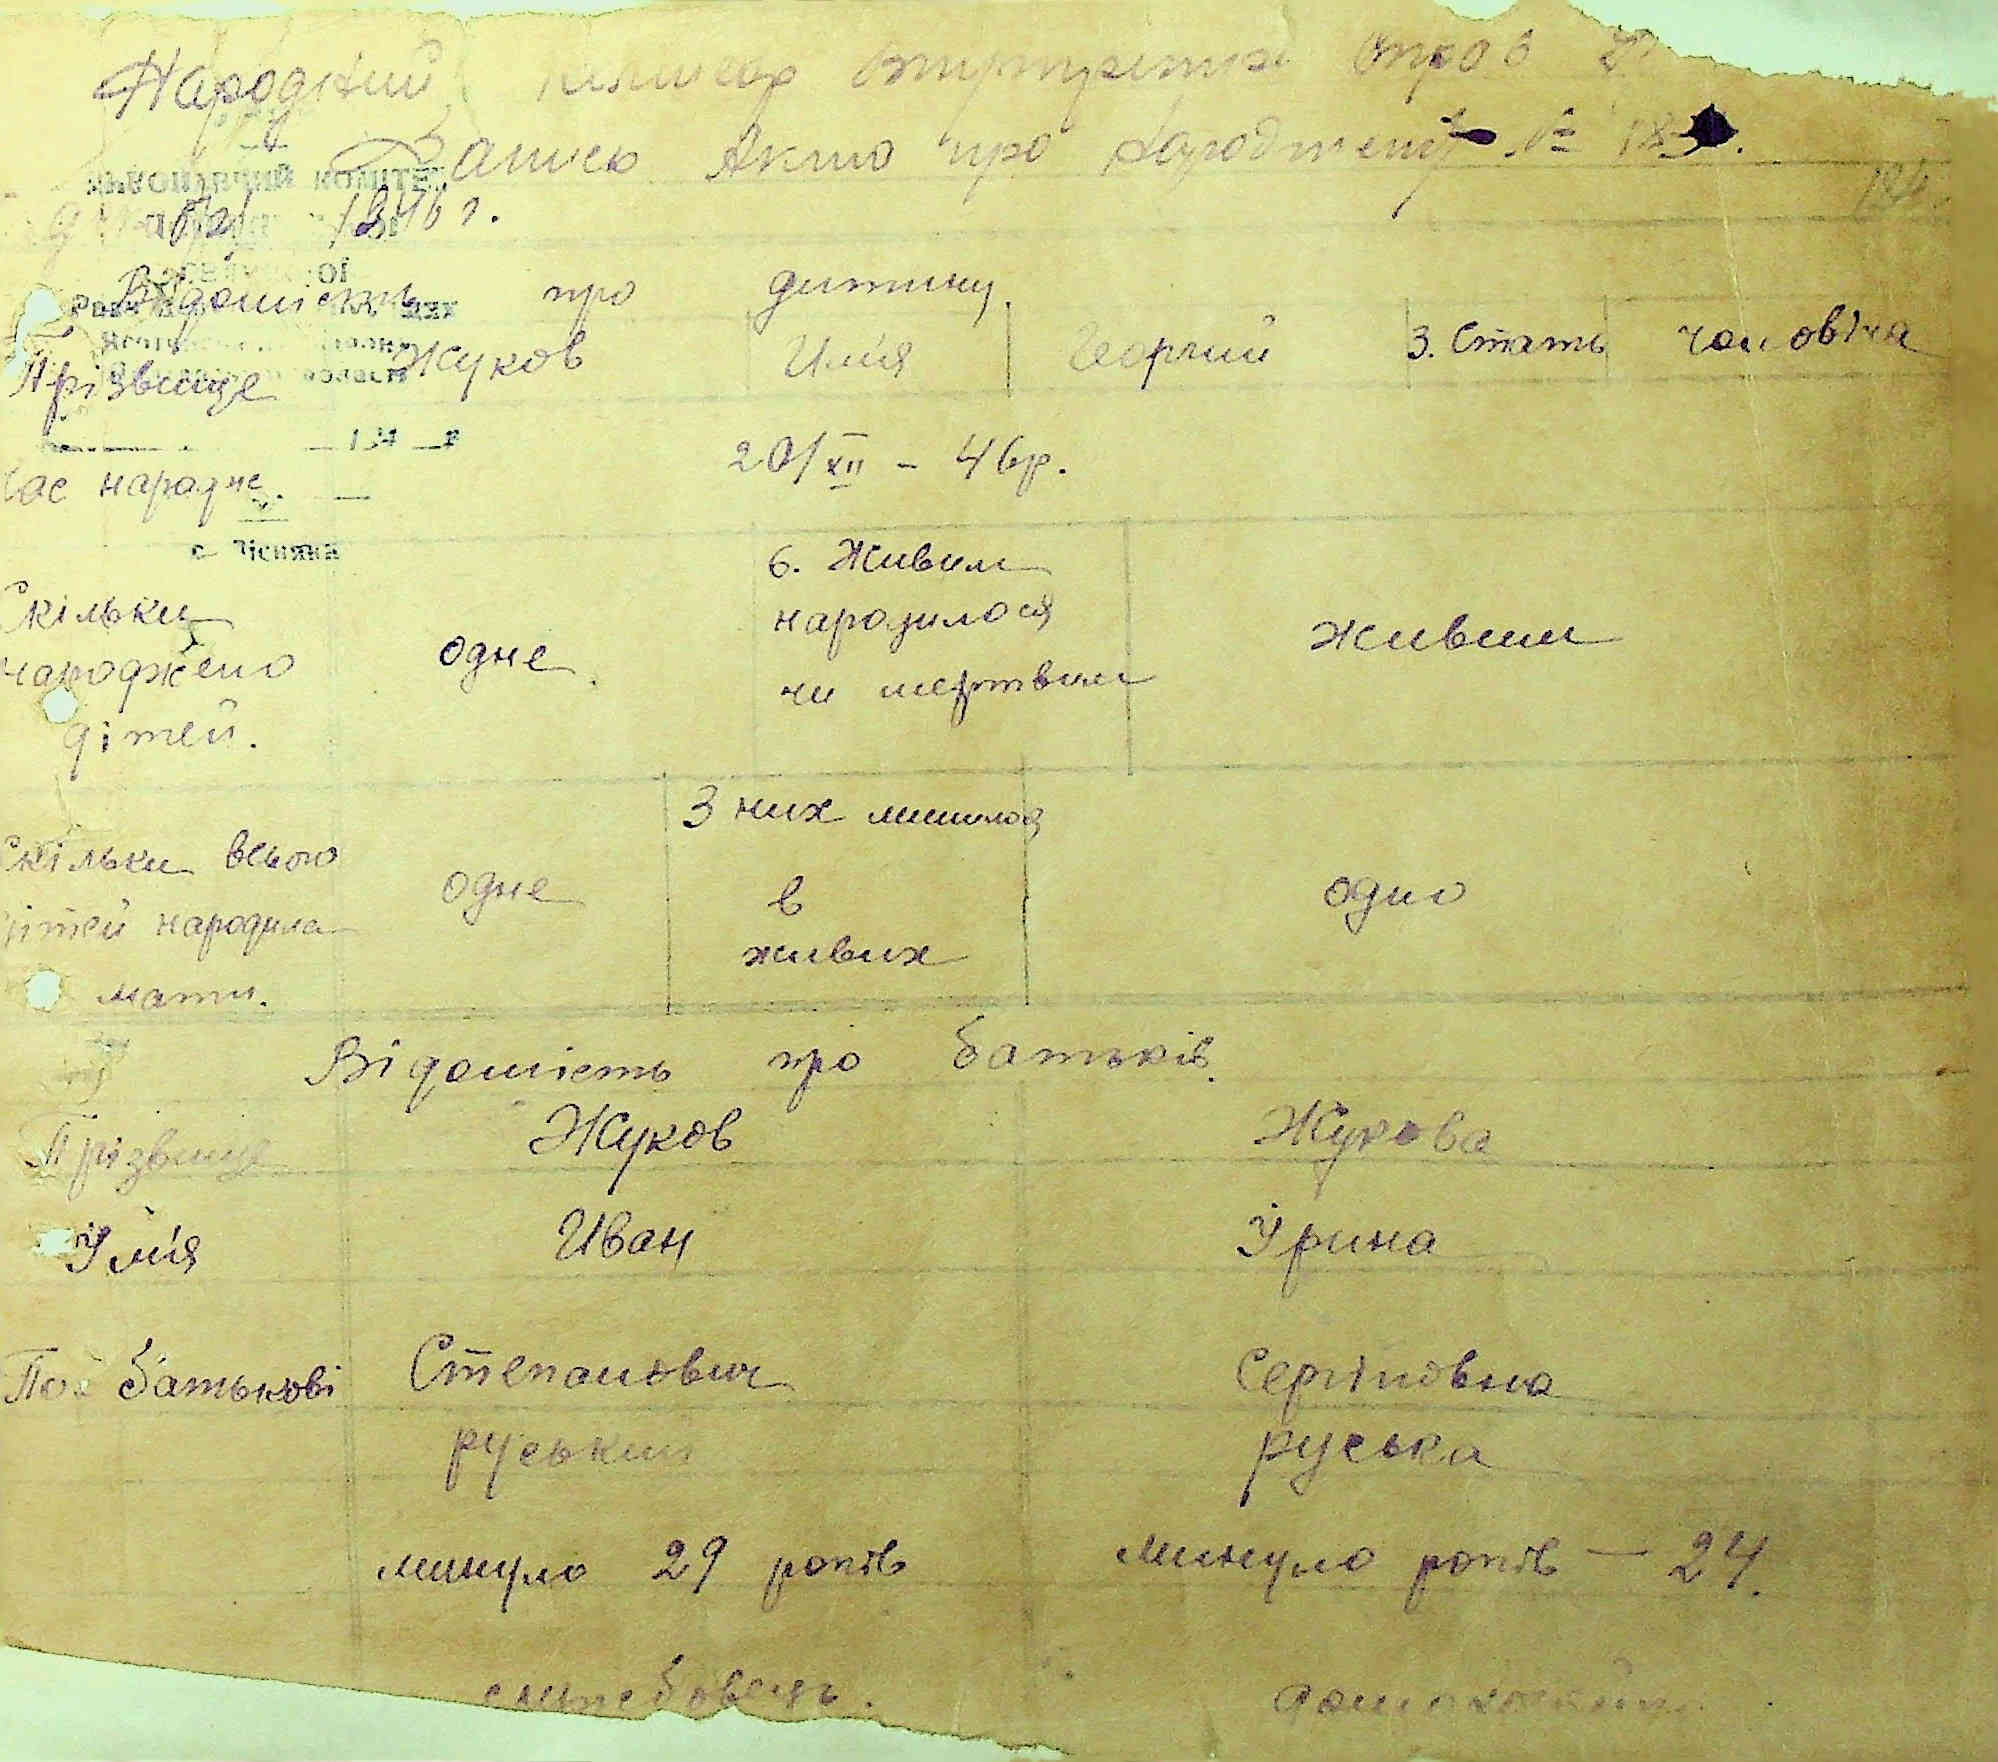 Народний
Запись Акта про народження №
1946 г.
Відомість про дитину.
Прізвище Жуков Имя Георгий 3. Стать чоловіча
194 р
Час народж. 20/XII - 46р.
с
Скільки народжено дітей. одне. 6. Живим народилося чи мертвим живим
Скільки всього дітей народила мати. одне З них лишилося в живих одно
Відомість про батьків.
Прізвище Жуков Жукова
Імя Иван Ірина
По батькові Степанович Сергіповна
руський руська
минуло 29 років минуло років — 24.